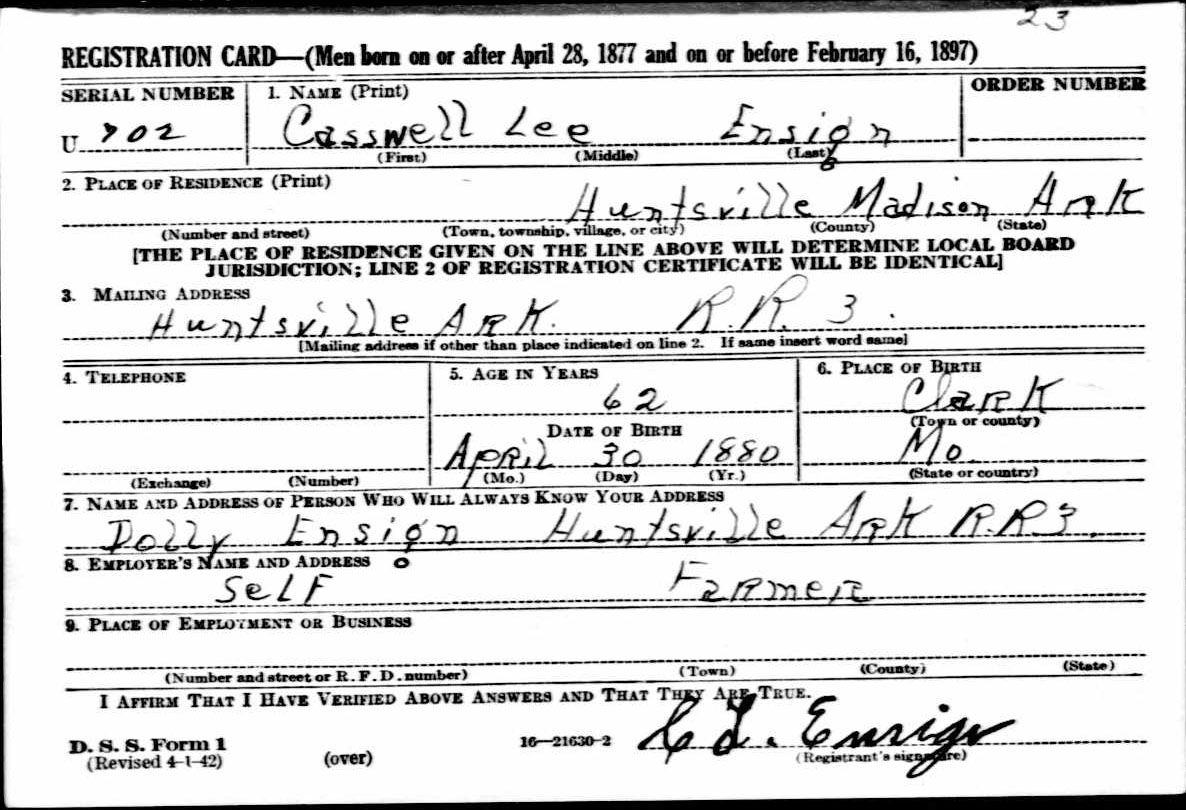 23
REGISTRATION CARD—(Men born on or after April 28, 1877 and on or before February 16, 1897)
SERIAL NUMBER 1. NAME (Print) ORDER NUMBER
U 702 Casswell Lee Ensign
(First) (Middle) (Last)
2. PLACE OF RESIDENCE (Print)
Huntsville Madison Ark
(Number and street) (Town, township, village, or city) (County) (State)
[THE PLACE OF RESIDENCE GIVEN ON THE LINE ABOVE WILL DETERMINE LOCAL BOARD
JURISDICTION; LINE 2 OF REGISTRATION CERTIFICATE WILL BE IDENTICAL]
3. MAILING ADDRESS
Huntsville Ark. R.R. 3.
[Mailing address if other than place indicated on line 2. If same insert word same]
4. TELEPHONE 5. AGE IN YEARS 6. PLACE OF BIRTH
62 Clark
(Town or county)
DATE OF BIRTH
April 30 1880 Mo.
(Exchange) (Number) (Mo.) (Day) (Yr.) (State or country)
7. NAME AND ADDRESS OF PERSON WHO WILL ALWAYS KNOW YOUR ADDRESS
Dolly Ensign Huntsville Ark R.R3.
8. EMPLOYER'S NAME AND ADDRESS
Self Farmer
9. PLACE OF EMPLOYMENT OR BUSINESS
(Number and street or R. F. D. number) (Town) (County) (State)
I AFFIRM THAT I HAVE VERIFIED ABOVE ANSWERS AND THAT THEY ARE TRUE.
D. S. S. Form 1
(Revised 4-1-42) (over) 16—21630-2 C L. Ensign
(Registrant's signature)